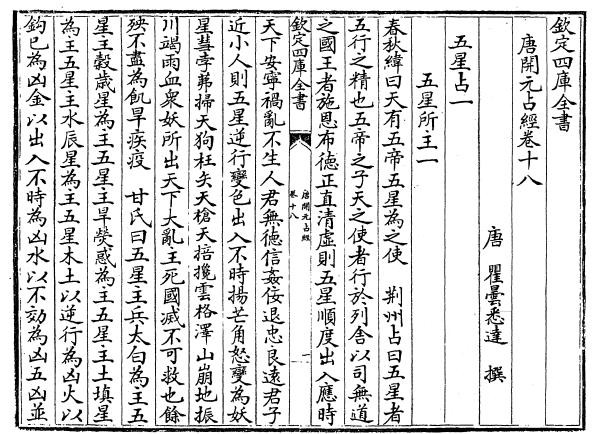 欽定四庫全書
唐開元占經卷十八
唐 瞿曇悉達 撰
五星占一
五星所主一
春秋緯曰天有五帝五星為之使 荆州占曰五星者
五行之精也五帝之子天之使者行於列舍以司無道
之國王者施恩布德正直清虛則五星順度出入應時
欽定四庫全書
唐開元占經
卷十八
一
天下安寧禍亂不生人君無德信姦佞退忠良遠君子
近小人則五星逆行變色出入不時揚芒角怒變為妖
星彗孛茀掃天狗枉矢天槍天棓攙雲格澤山崩地振
川竭雨血衆妖所出天下大亂主死國滅不可救也餘
殃不盡為飢旱疾疫 甘氏曰五星主兵太白為主五
星主穀歲星為主五星主旱熒惑為主五星主土填星
為主五星主水辰星為主五星木土以逆行為凶火以
鈎巳為凶金以出入不時為凶水以不効為凶五凶並